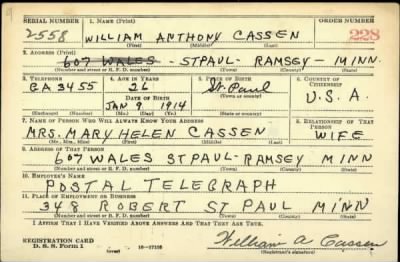 SERIAL NUMBER 1. NAME (Print) ORDER NUMBER
2558 WILLIAM ANTHONY CASSEN 228
(First) (Middle) (Last)
2. ADDRESS (Print)
607 WALES - ST PAUL - RAMSEY - MINN.
(Number and street or R. F. D. number) (Town) (County) (State)
3. TELEPHONE 4. AGE IN YEARS 5. PLACE OF BIRTH 6. COUNTRY OF CITIZENSHIP
GA 3455 26 St. Paul
DATE OF BIRTH (Town or county) U.S.A.
JAN 9 1914
(Exchange) (Number) (Mo.) (Day) (Yr.) (State or country)
7. NAME OF PERSON WHO WILL ALWAYS KNOW YOUR ADDRESS 8. RELATIONSHIP OF THAT PERSON
MRS. MARY HELEN CASSEN WIFE
(Mr., Mrs., Miss) (First) (Middle) (Last)
9. ADDRESS OF THAT PERSON
607 WALES ST PAUL - RAMSEY MINN
(Number and street or R. F. D. number) (Town) (County) (State)
10. EMPLOYER'S NAME
POSTAL TELEGRAPH
11. PLACE OF EMPLOYMENT OR BUSINESS
348 ROBERT ST PAUL MINN
(Number and street or R. F. D. number) (Town) (County) (State)
I AFFIRM THAT I HAVE VERIFIED ABOVE ANSWERS AND THAT THEY ARE TRUE.
REGISTRATION CARD
D. S. S. Form 1 16-17105 William A Cassen
(Registrant's signature)